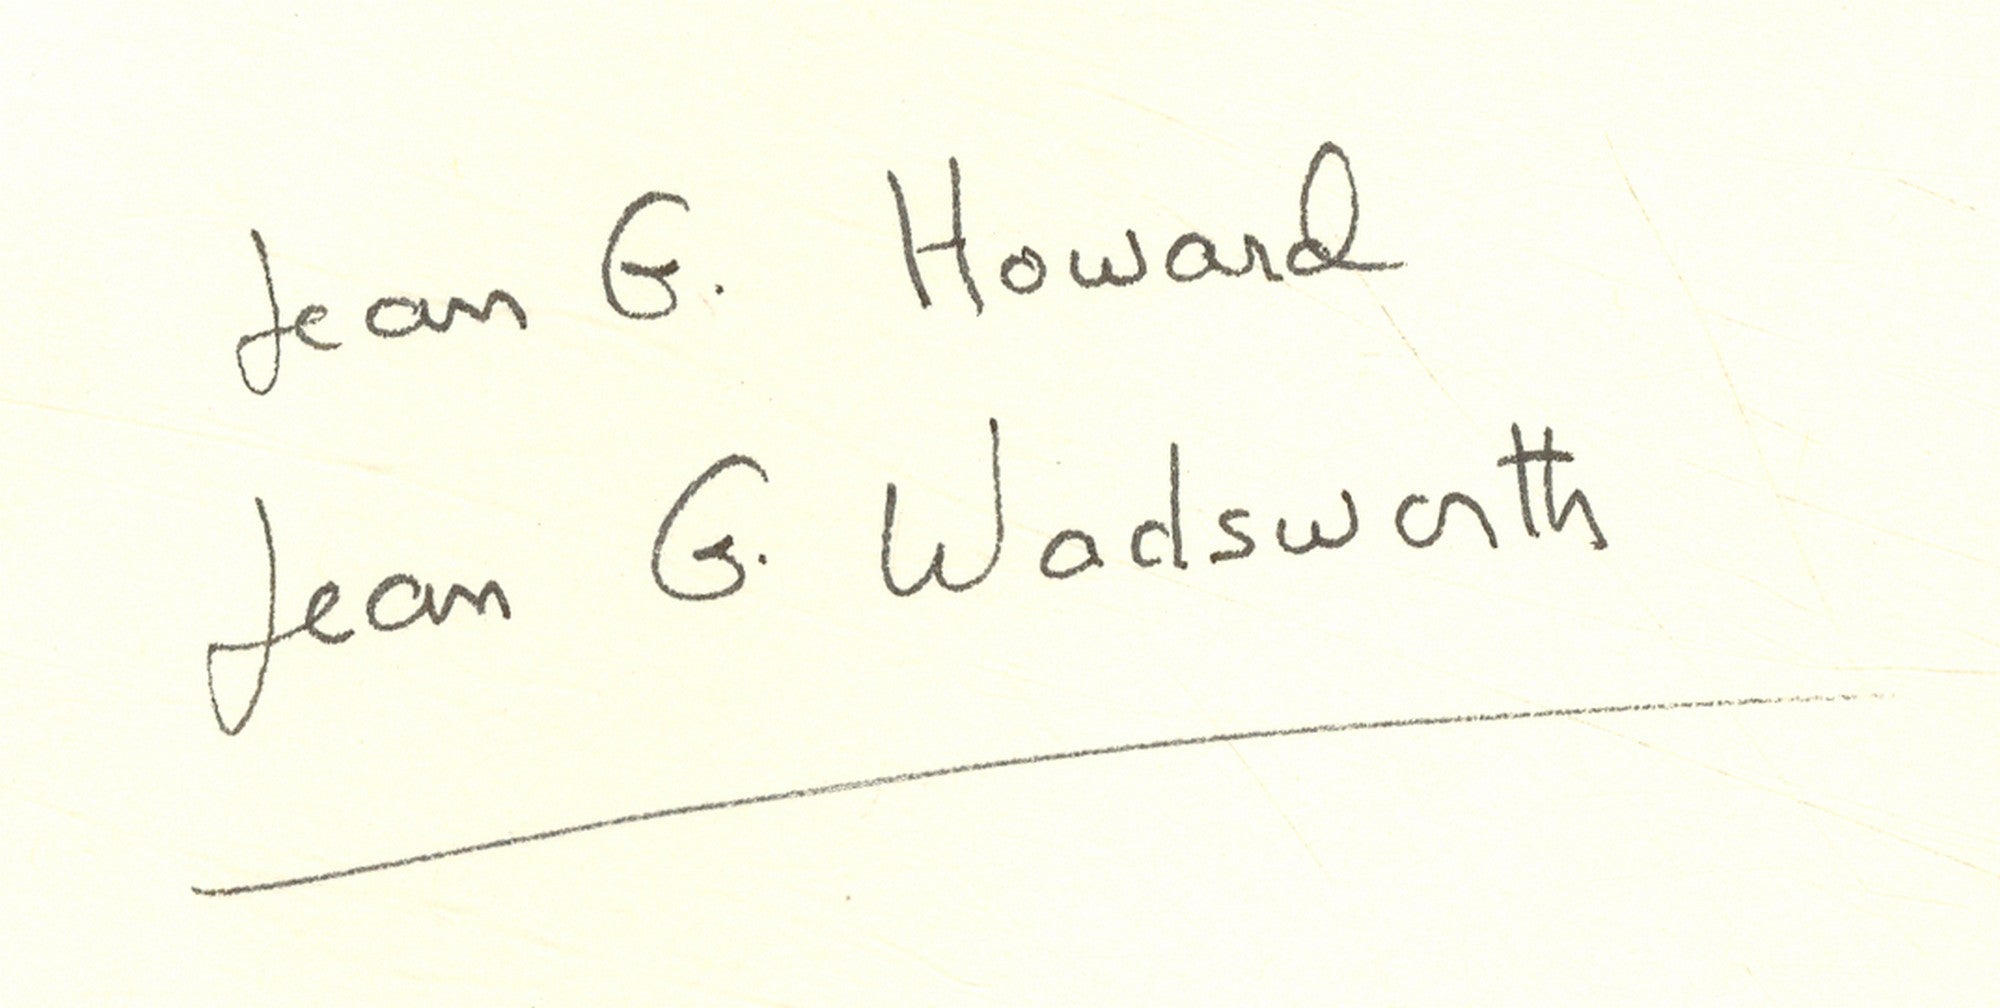 Jean G. Howard
Jean G. Wadsworth